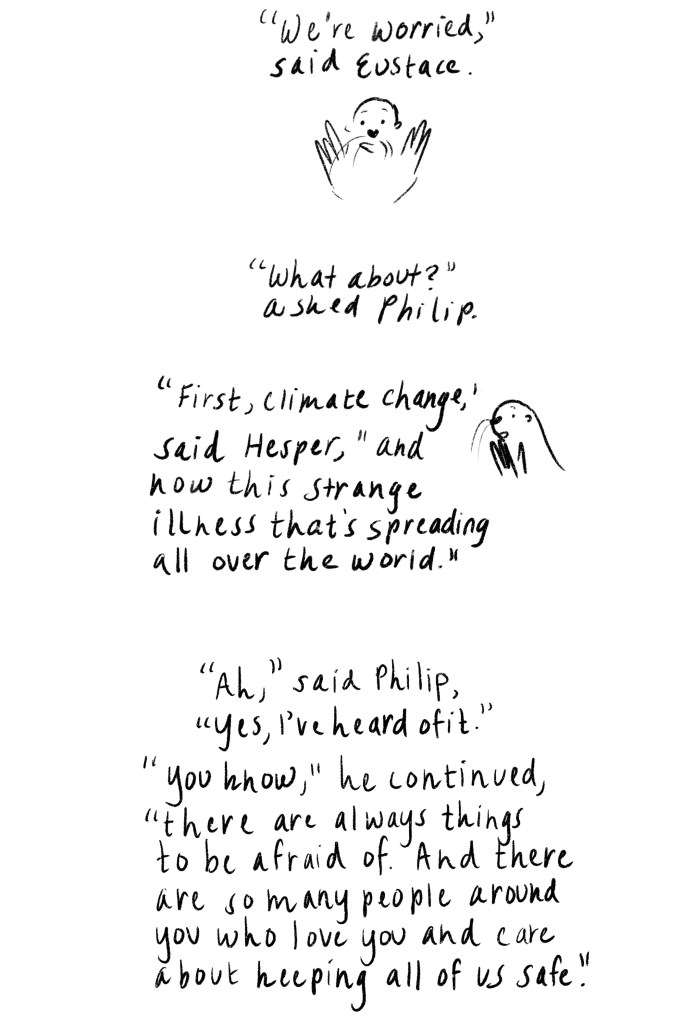 "We're worried,"
said Eustace.
"What about?"
asked Philip.
"First, climate change,'
said Hesper, "and
now this strange
illness that's spreading
all over the world."
"Ah," said Philip,
"yes, I've heard of it."
"you know," he continued,
"there are always things
to be afraid of. And there
are so many people around
you who love you and care
about keeping all of us safe."